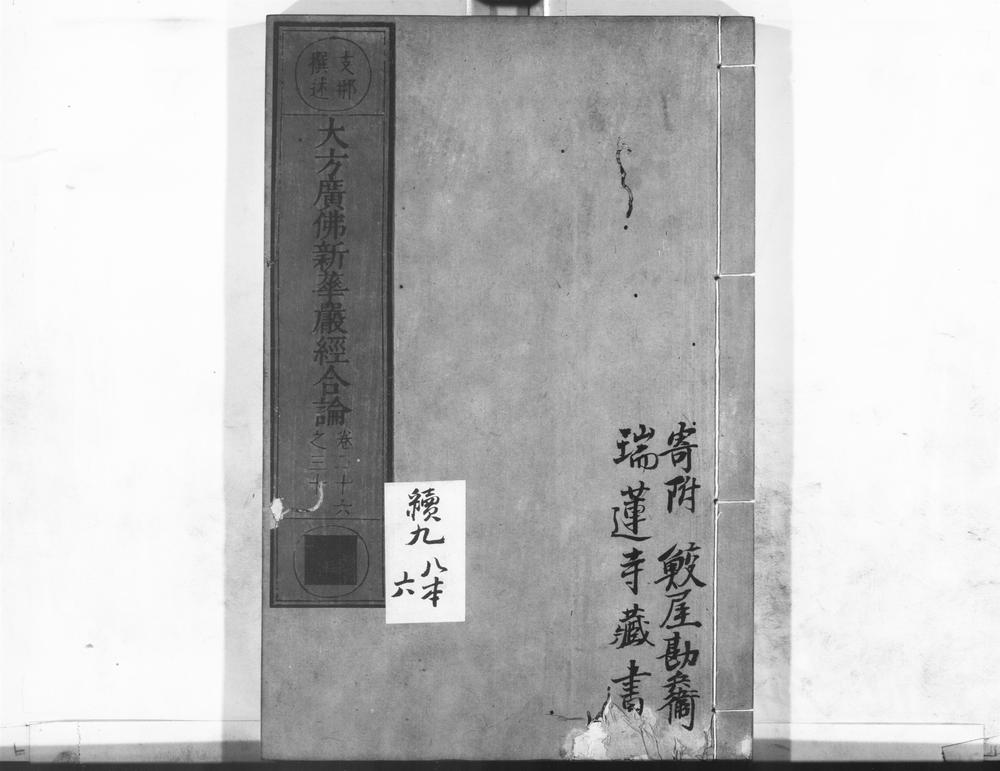 寄附 鮫屋勘兵衛
瑞蓮寺藏書
支那
撰述
大方廣佛新華嚴經合論
卷二十六
之三十
續九
八本
六